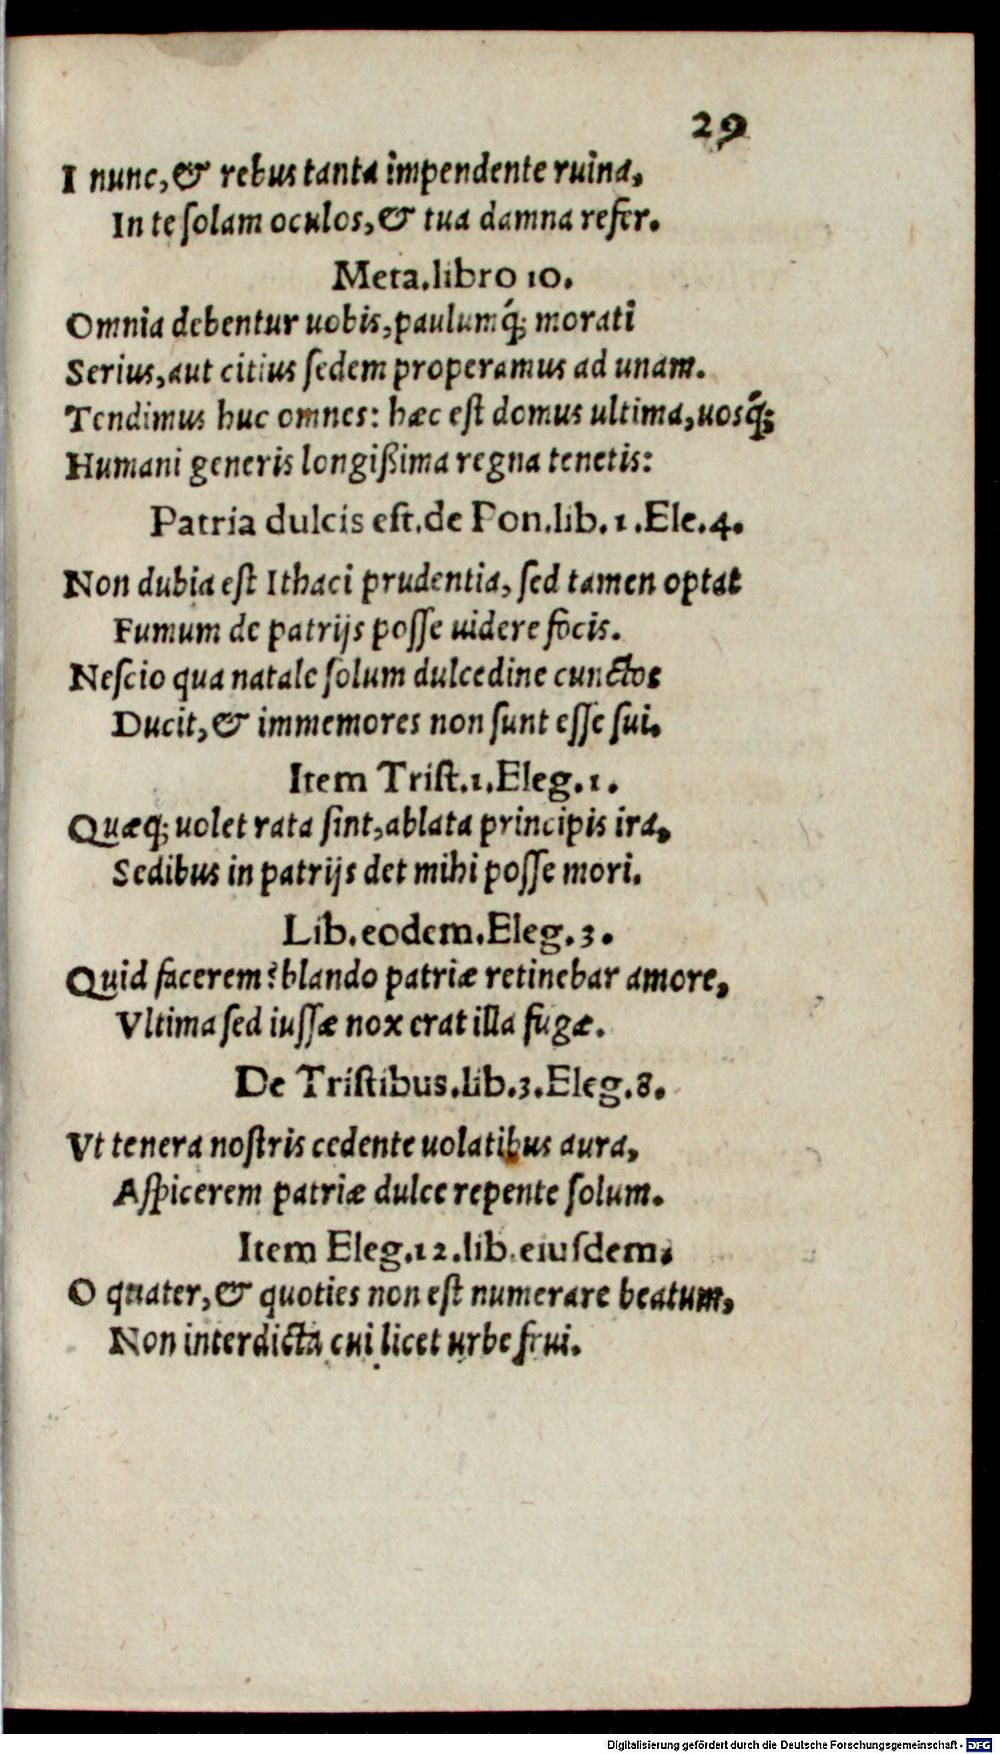 29
I nunc, & rebus tanta impendente ruina,
In te ſolam oculos, & tua damna refer.
Meta.libro 10.
Omnia debentur uobis, paulumq́; morati
Serius, aut citius ſedem properamus ad unam.
Tendimus huc omnes: hæc eſt domus ultima, uosq́;
Humani generis longißima regna tenetis:
Patria dulcis eſt.de Pon.lib.1.Ele.4.
Non dubia eſt Ithaci prudentia, ſed tamen optat
Fumum de patrijs poſſe uidere focis.
Neſcio qua natale ſolum dulcedine cunctos
Ducit, & immemores non ſunt eſſe ſui.
Item Triſt.1.Eleg.1.
Quæq; uolet rata ſint, ablata principis ira,
Sedibus in patrijs det mihi poſſe mori.
Lib.eodem.Eleg.3.
Quid facerem? blando patriæ retinebar amore,
Vltima ſed iuſſæ nox erat illa fugæ.
De Triſtibus.lib.3.Eleg.8.
Vt tenera noſtris cedente uolatibus aura,
Aſpicerem patriæ dulce repente ſolum.
Item Eleg.12.lib.eiuſdem.
O quater, & quoties non eſt numerare beatum,
Non interdicta cui licet urbe frui.
Digitalisierung gefördert durch die Deutsche Forschungsgemeinschaft - DFG